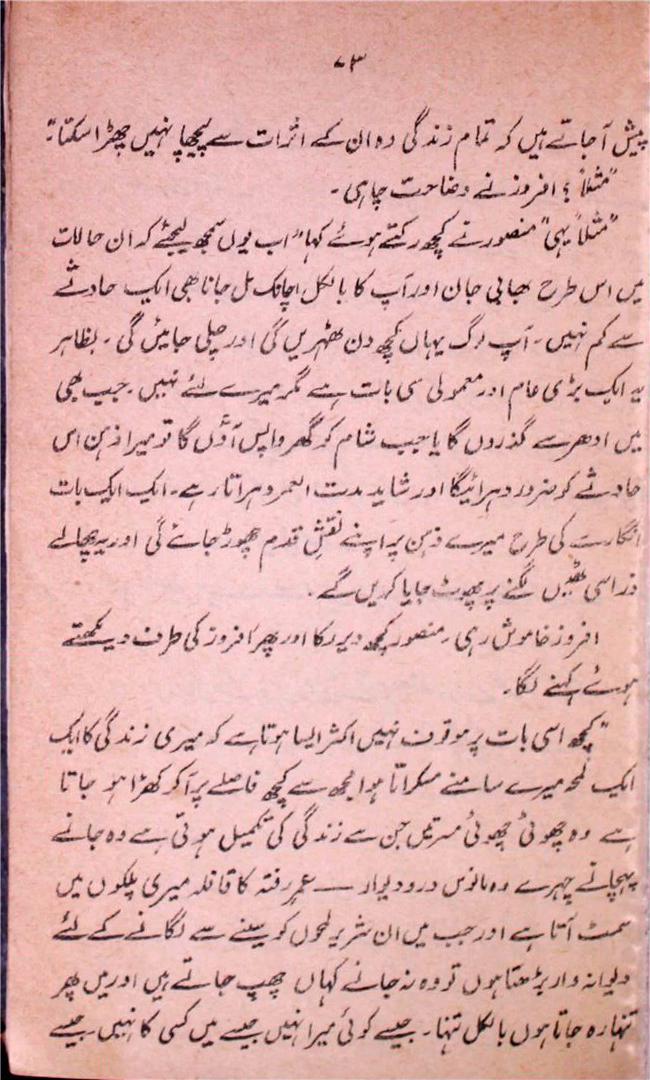 ۷۳
پیش آجاتے ہیں کہ تمام زندگی وہ ان کے اثرات سے پیچھا نہیں چھڑا سکتا۔"
"مثلاً؟ افروز نے وضاحت چاہی۔
"مثلاً یہی" منصور نے کچھ رکتے ہوئے کہا" اب یوں سمجھ لیجئے کہ ان حالات
میں اس طرح بھابی جان اور آپ کا بالکل اچانک مل جانا بھی ایک حادثے
سے کم نہیں۔ آپ لوگ یہاں کچھ دن ٹھہریں گی اور چلی جائیں گی۔ بظاہر
یہ ایک بڑی عام اور معمولی سی بات ہے مگر میرے لئے نہیں۔ جب بھی
میں ادھر سے گذروں گا یا جب شام کو گھر واپس آؤں گا تو میرا ذہن اس
حادثے کو ضرور دہرائیگا اور شاید مدت العمر دہراتا رہے۔ ایک ایک بات
انگارے کی طرح میرے ذہن پر اپنے نقشِ قدم چھوڑ جائے گی اور یہ چھالے
ذرا سی ٹھیس لگنے پر پھوٹ جایا کریں گے۔
افروز خاموش رہی۔ منصور کچھ دیر رکا اور پھر افروز کی طرف دیکھتے
ہوئے کہنے لگا۔
"کچھ اسی بات پر موقوف نہیں اکثر ایسا ہوتا ہے کہ میری زندگی کا ایک
ایک لمحہ میرے سامنے مسکراتا ہوا مجھ سے کچھ فاصلے پر آکر کھڑا ہو جاتا
ہے وہ چھوٹی چھوٹی مسرتیں جن سے زندگی کی تکمیل ہوتی ہے وہ جانے
پہچانے چہرے وہ مانوس در و دیوار — عمرِ رفتہ کا قافلہ میری پلکوں میں
سمٹ آتا ہے اور جب میں ان شریر لمحوں کو سینے سے لگانے کے لئے
دیوانہ وار بڑھتا ہوں تو وہ نہ جانے کہاں چھپ جاتے ہیں اور میں پھر
تنہا رہ جاتا ہوں بالکل تنہا۔ جیسے کوئی میرا نہیں جیسے میں کسی کا نہیں۔ جیسے